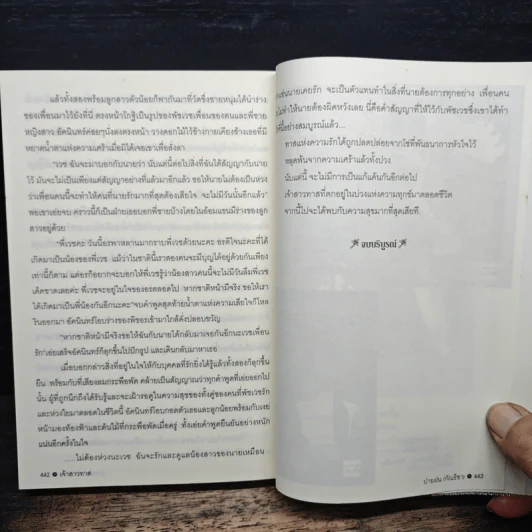 แล้วทั้งสองพร้อมลูกสาวตัวน้อยก็พากันมาที่วัดซึ่งชายหนุ่มได้นำร่าง
ของเพื่อนมาไว้ยังที่นี่ ตรงหน้าโกฐิเป็นรูปของพัชเวชเพื่อนของตนและพี่ชาย
หญิงสาว อัคนินทร์ค่อยๆนั่งลงตรงหน้า วางดอกไม้ไว้ข้างกายเคียงข้างเธอที่มี
หยาดน้ำตาแห่งความเศร้าเมื่อมิได้เจอเขาเพื่อสั่งลา
"เวช ฉันจะมาบอกกับนายว่า นับแต่นี้ต่อไปสิ่งที่ฉันได้สัญญากับนาย
ไว้ มันจะไม่เป็นเพียงแค่สัญญาอย่างที่แล้วมาอีกแล้ว ขอให้นายไม่ต้องเป็นห่วง
ว่าเพื่อนคนนี้จะทำให้คนที่นายรักมากที่สุดต้องเสียใจ จะไม่มีวันนั้นอีกแล้ว"
พอเขาเอ่ยจบ คราวนี้ก็เป็นฝ่ายเธอบอกพี่ชายบ้างโดยในอ้อมแขนมีร่างของลูก
สาวอยู่ด้วย
"พี่เวชคะ วันนี้อรพาหลานมากราบพี่เวชด้วยนะคะ อรดีใจนะคะที่ได้
เกิดมาเป็นน้องของพี่เวช แม้ว่าในชาตินี้เราสองคนจะมีบุญได้อยู่ด้วยกันเพียง
เท่านี้ก็ตาม แต่อรก็อยากจะบอกให้พี่เวชรู้ว่าน้องสาวคนนี้จะไม่มีวันลืมพี่เวช
เด็ดขาดเลยค่ะ พี่เวชจะอยู่ในใจของอรตลอดไป หากชาติหน้ามีจริง ขอให้เรา
ได้เกิดมาเป็นพี่น้องกันอีกนะคะ"จบคำพูดสุดท้ายน้ำตาแห่งความเสียใจก็ไหล
รินออกมา อัคนินทร์โอบร่างของพัชอรเข้ามาใกล้ดั่งปลอบขวัญ
"หากชาติหน้ามีจริงขอให้ฉันกับนายได้กลับมาเจอกันอีกนะเวชเพื่อน
รัก"เอ่ยเสร็จอัคนินทร์ก็ลุกขึ้นไปปักธูป และเดินกลับมาหาเธอ
เมื่อบอกกล่าวสิ่งที่อยู่ในใจให้กับบุคคลที่รักยิ่งได้รู้แล้วทั้งสองก็ลุกขึ้น
ยืน พร้อมกับที่เสียงลมกระพือพัด คล้ายเป็นสัญญาณว่าทุกคำพูดที่เอ่ยออกไป
นั้น ผู้ที่ถูกนึกถึงได้รับรู้และจะเฝ้ารอดูในความสุขของทั้งคู่ของคนที่พัชเวชรัก
และห่วงใยมาตลอดในชีวิตนี้ อัคนินทร์โอบกอดตัวเธอและลูกน้อยพร้อมกับเงย
หน้ามองท้องฟ้าและต้นไม้ที่กระพือพัดเมื่อครู่ ทั้งเอ่ยคำพูดยืนยันอย่างหนัก
แน่นอีกครั้งในใจ
...ไม่ต้องห่วงนะเวช ฉันจะรักและดูแลน้องสาวของนายเหมือน
442 เจ้าสาวทาส
ดังเช่นนายเคยรัก จะเป็นตัวแทนทำในสิ่งที่นายต้องการทุกอย่าง เพื่อนคน
ไม่ทำให้นายต้องผิดหวังเลย นี่คือคำสัญญาที่ให้ไว้กับพัชเวชซึ่งเขาได้ทำ
อย่างสมบูรณ์แล้ว...
ทาสแห่งความรักได้ถูกปลดปล่อยจากโซ่ที่พันธนาการหัวใจไว้
หลุดพ้นจากความเศร้าแล้วทั้งปวง
นับแต่นี้ จะไม่มีการเป็นแก้แค้นกันอีกต่อไป
เจ้าสาวทาสที่ตกอยู่ในบ่วงแห่งความทุกข์มาตลอดชีวิต
จากนี้ไปจะได้พบกับความสุขมากที่สุดเสียที
จบบริบูรณ์
443